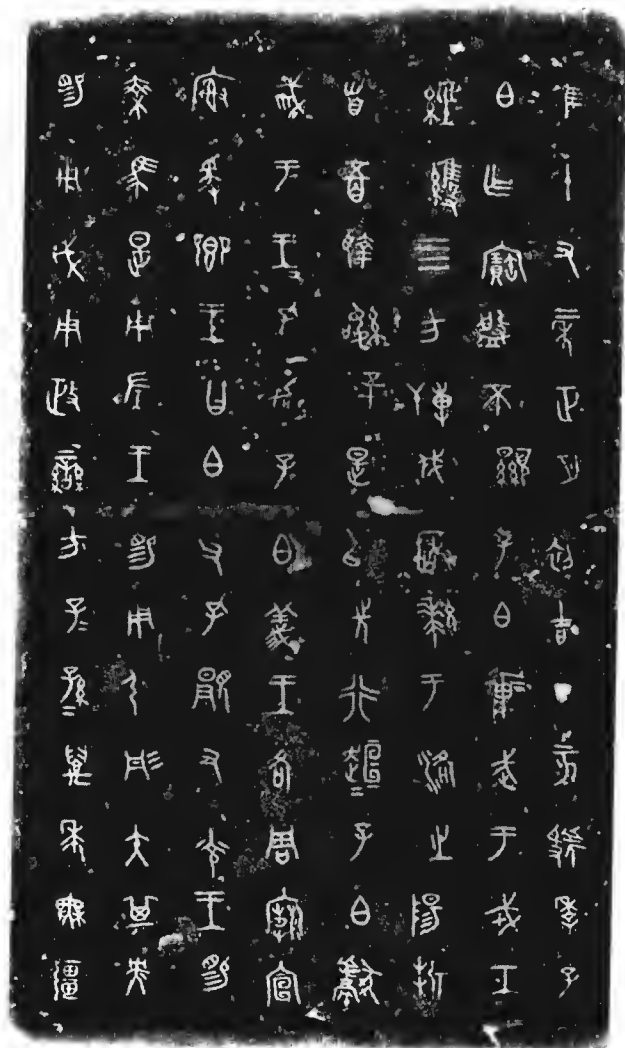 隹十又二年正月初吉丁亥虢季子
白乍寶盤不顯子白壯武于戎工
經維四方搏伐玁狁于洛之陽折
首五百執訊五十是以先行趄=子白獻
馘于王=孔加子白義王各周廟宣
榭爰卿王曰白父孔顯又光王賜
乘馬是用左王賜用弓彤矢其央
賜用戉用政蠻方子=孫=萬年無疆